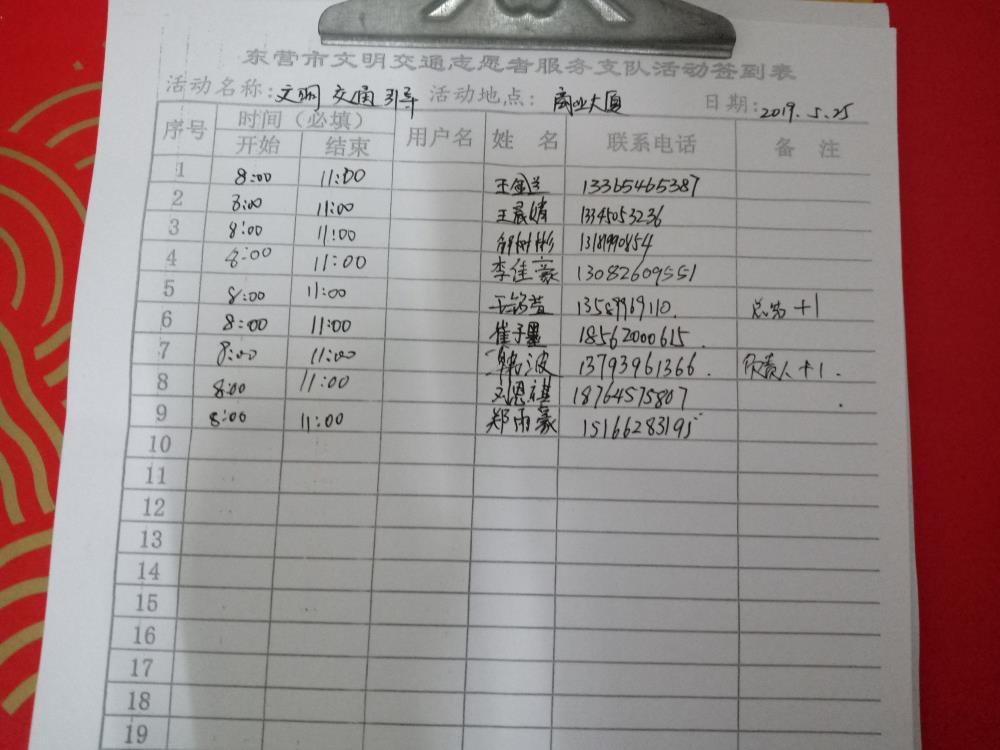 东营市文明交通志愿者服务支队活动签到表
活动名称：文明交通引导 活动地点：商业大厦 日期：2019.5.25
序号 时间（必填） 用户名 姓 名 联系电话 备 注
开始 结束
1 8:00 11:00 王金兰 13365465387
2 8:00 11:00 王晨婧 13345053236
3 8:00 11:00 树彬
4 8:00 11:00 李佳豪 13082609551
5 8:00 11:00 总结+1
6 8:00 11:00 崔子墨 18562000615.
7 8:00 11:00 韩波 13793961366. 负责人+1.
8 8:00 11:00 刘恩祺 18764575807
9 8:00 11:00 郑雨豪 15166283195
10
11
12
13
14
15
16
17
18
19